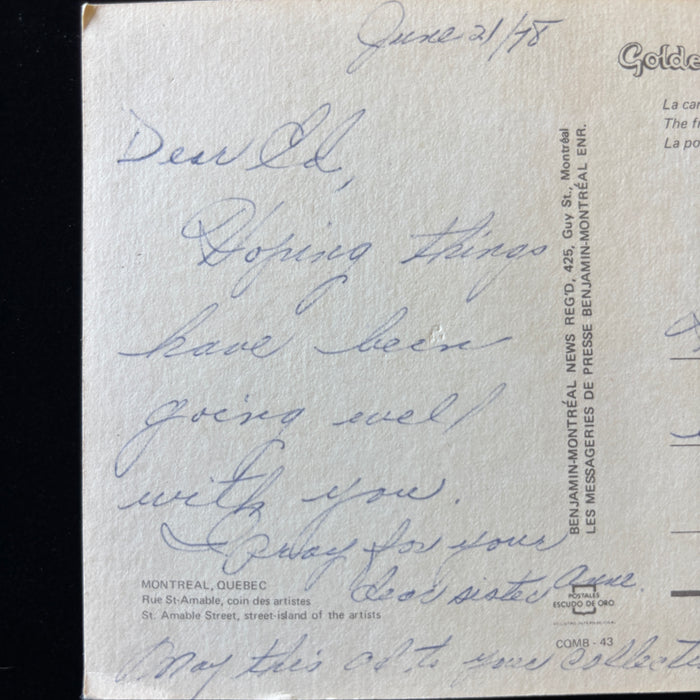 June 21/78
Dear Ed,
Hoping things
have been
going well
with you.
I pray for your
dear sister Anne.
May this cd. to your collecti
MONTREAL, QUEBEC
Rue St-Amable, coin des artistes
St. Amable Street, street-island of the artists
BENJAMIN-MONTRÉAL NEWS REG'D, 425, Guy St., Montréal
LES MESSAGERIES DE PRESSE BENJAMIN-MONTRÉAL ENR.
POSTALES
ESCUDO DE ORO
COMB - 43
Golde
La car
The f
La po